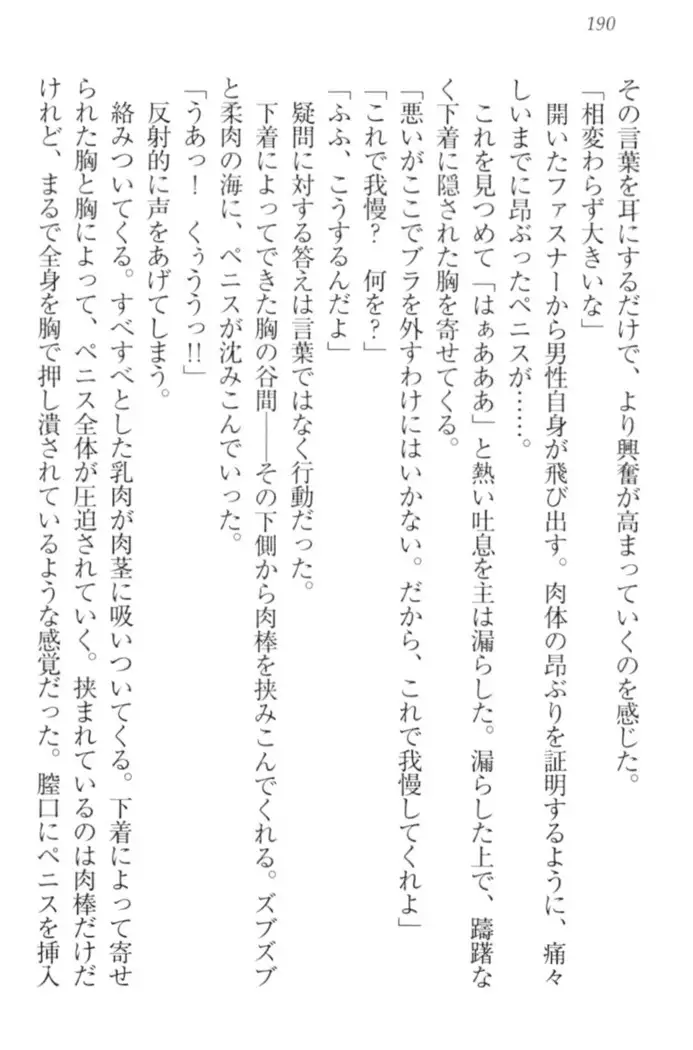 190
その言葉を耳にするだけで、より興奮が高まっていくのを感じた。
「相変わらず大きいな」
開いたファスナーから男性自身が飛び出す。肉体の昂ぶりを証明するように、痛々
しいまでに昂ぶったペニスが……。
これを見つめて「はぁあああ」と熱い吐息を主は漏らした。漏らした上で、躊躇な
く下着に隠された胸を寄せてくる。
「悪いがここでブラを外すわけにはいかない。だから、これで我慢してくれよ」
「これで我慢?　何を?」
「ふふ、こうするんだよ」
疑問に対する答えは言葉ではなく行動だった。
下着によってできた胸の谷間――その下側から肉棒を挟みこんでくれる。ズブズブ
と柔肉の海に、ペニスが沈みこんでいった。
「うあっ!　くぅううっ!!」
反射的に声をあげてしまう。
絡みついてくる。すべすべとした乳肉が肉茎に吸いついてくる。下着によって寄せ
られた胸と胸によって、ペニス全体が圧迫されていく。挟まれているのは肉棒だけだ
けれど、まるで全身を胸で押し潰されているような感覚だった。膣口にペニスを挿入